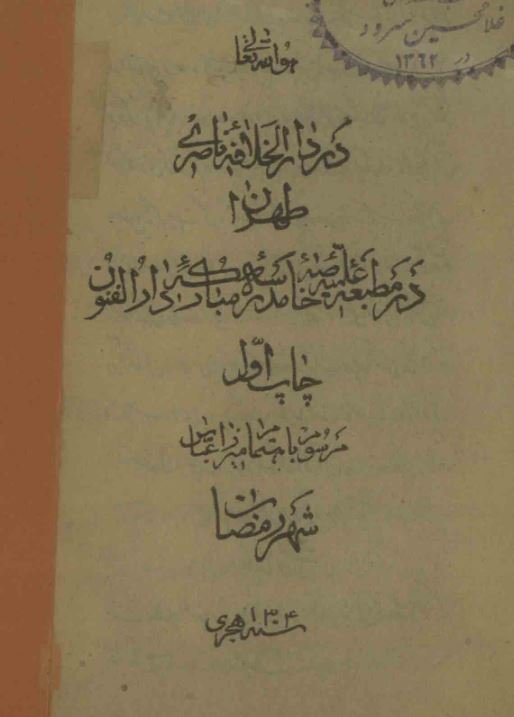 غلامحسین سرود
در ۱۳۶۲
هو الله تعالی
در دار الخلافه ناصری
طهران
در مطبعه علمیه خاصه مدرسه مبارکه دار الفنون
چاپ اوّل
مرسوم باهتمام میرزا عباس
شهر رمضان
سنه ۱۳۰۴ هجری